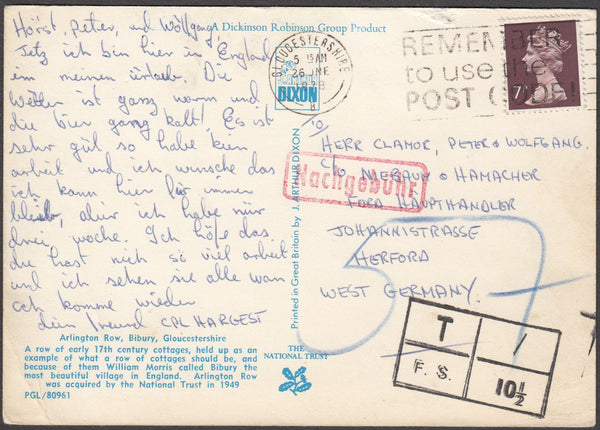 A Dickinson Robinson Group Product
Horst, Peter, und Wolfgang,
Jetz ich bin hier in England
ein meinen urlaub. Die
Wetter ist ganz warm und
die bier ganz kalt! Es ist
sehr gut so habe kein
arbeit und ich wunsche das
ich kann hier für immer
bleib, aber ich habe nur
drei woche. Ich hofe das
du hast nich so viel arbeit
und ich sehen sie alle wan
ich komme wieder
dein freund CPL HARGEST
GLOUCESTERSHIRE
5 15AM
26 JNE
1978
REMEMBER
to use the
POST CODE!
7
DIXON
HERR CLAMOR, PETER & WOLFGANG.
C/O & HAMACHER
FORD HAUPTHANDLER
JOHANNISTRASSE
HERFORD
WEST GERMANY.
Nachgebühr
57
T /
F. S. 10½
Printed in Great Britain by J. ARTHUR DIXON
Arlington Row, Bibury, Gloucestershire
A row of early 17th century cottages, held up as an
example of what a row of cottages should be, and
because of them William Morris called Bibury the
most beautiful village in England. Arlington Row
was acquired by the National Trust in 1949
PGL/80961
THE
NATIONAL TRUST